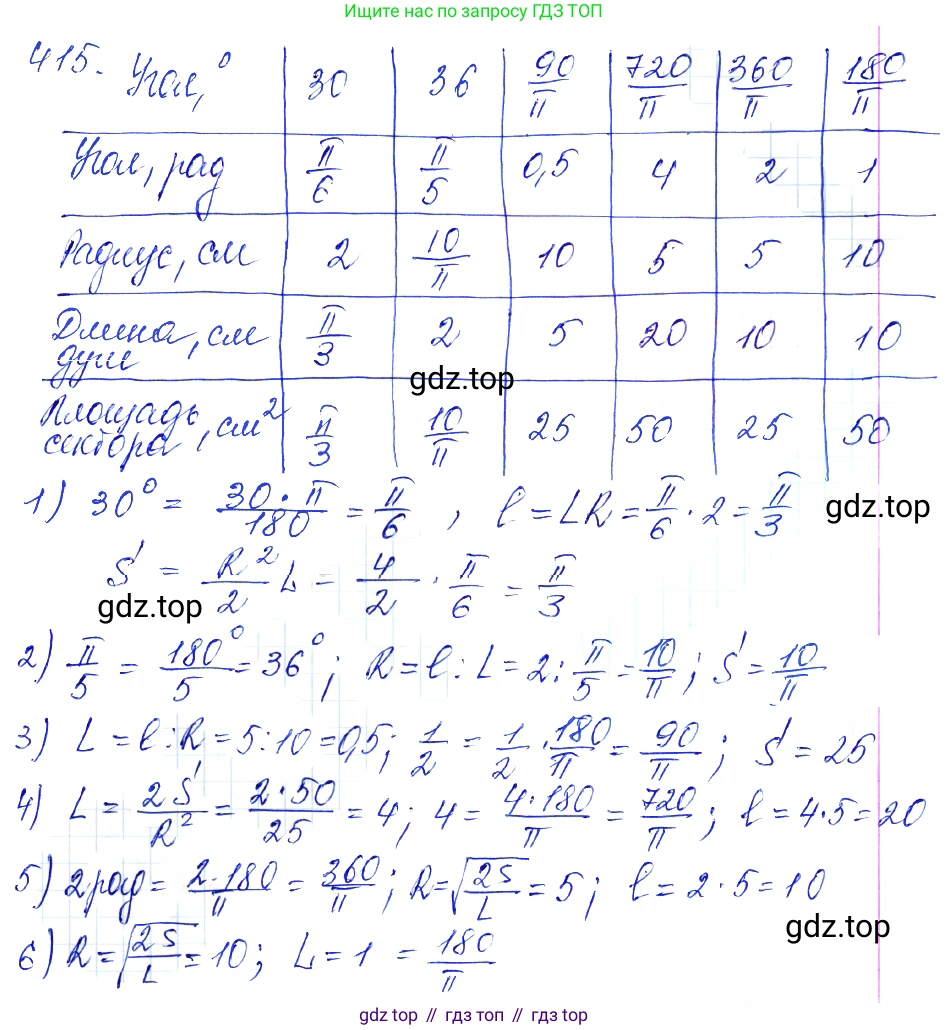 Ищите нас по запросу ГДЗ ТОП
415. Угол, ° | 30 | 36 | 90/π | 720/π | 360/π | 180/π
Угол, рад | π/6 | π/5 | 0,5 | 4 | 2 | 1
Радиус, см | 2 | 10/π | 10 | 5 | 5 | 10
Длина, см дуги | π/3 | 2 | 5 | 20 | 10 | 10
gdz.top
Площадь, см² сектора | π/3 | 10/π | 25 | 50 | 25 | 50
1) 30° = 30·π/180 = π/6 , l = LR = π/6 · 2 = π/3
gdz.top
S = R²/2 L = 4/2 · π/6 = π/3
gdz.top
2) π/5 = 180°/5 = 36°; R = l : L = 2 : π/5 = 10/π; S = 10/π
3) L = l : R = 5 : 10 = 0,5; 1/2 = 1/2 · 180/π = 90/π; S = 25
4) L = 2S/R² = 2·50/25 = 4; 4 = 4·180/π = 720/π; l = 4·5 = 20
5) 2 рад = 2·180/π = 360/π; R = √(2S/L) = 5; l = 2·5 = 10
gdz.top
6) R = √(2S/L) = 10; L = 1 = 180/π
gdz.top // гдз топ // gdz.top